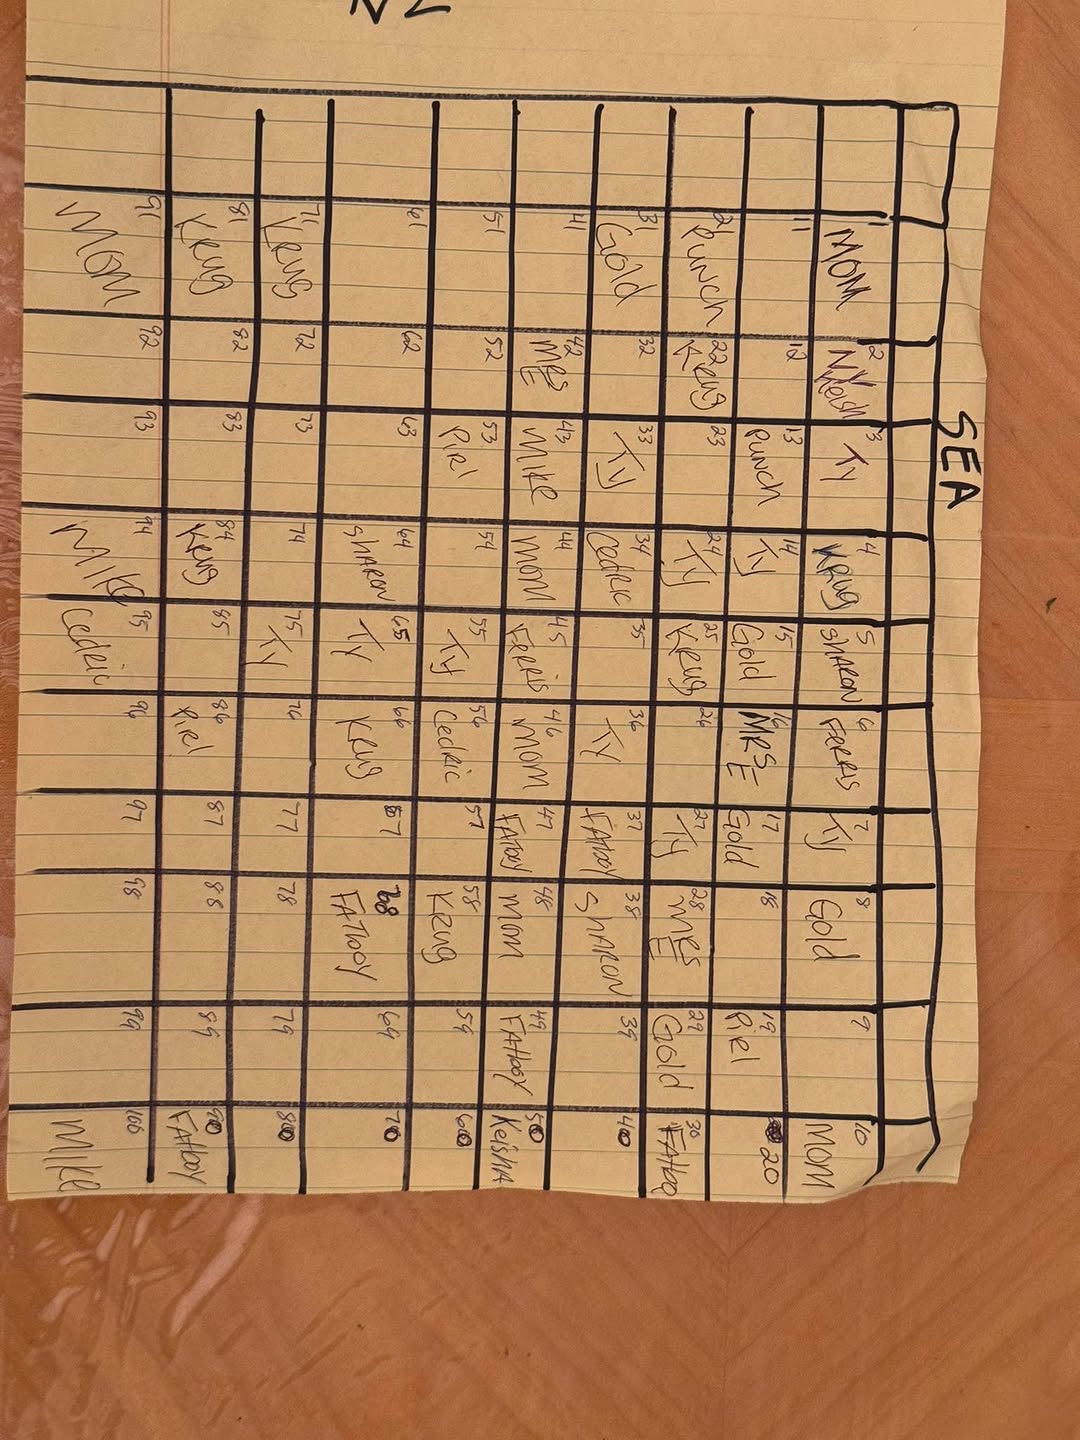 SEA
1 MOM 2 3 Ty 4 Krug 5 SHARON 6 FERRIS 7 Ty 8 Gold 9 10 MOM
11 12 13 Punch 14 Ty 15 Gold 16 MRS E 17 Gold 18 19 Pirl 20
21 Punch 22 Krug 23 24 Ty 25 Krug 26 27 Ty 28 MRS E 29 Gold 30
31 Gold 32 33 Ty 34 Cedric 35 36 Ty 37 FATboy 38 SHARON 39 40
41 42 MRS E 43 Mike 44 MOM 45 FERRIS 46 MOM 47 FATboy 48 MOM 49 FATboy 50 KeisHA
51 52 53 Pirl 54 55 Ty 56 Cedric 57 58 Krug 59 60
61 62 63 64 SHARON 65 Ty 66 Krug 67 68 FATboy 69 70
71 Krug 72 73 74 75 Ty 76 77 78 79 80
81 Krug 82 83 84 Krug 85 86 Pirl 87 88 89 90 FATboy
91 MOM 92 93 94 MIKe 95 Cedric 96 97 98 99 100 MIKe